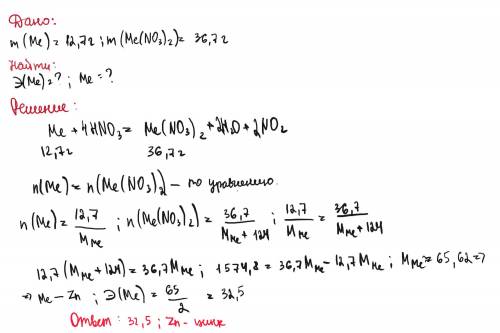 Дано:
m(Me) = 12,7г ; m(Me(NO3)2) = 36,7г
Найти:
Э(Me) = ? ; Me = ?
Решение:
Me + 4HNO3 = Me(NO3)2 + 2H2O + 2NO2
12,7г 36,7г
n(Me) = n(Me(NO3)2) – по уравнению.
n(Me) = 12,7/MMe ; n(Me(NO3)2) = 36,7/MMe + 124 ; 12,7/MMe = 36,7/MMe + 124
12,7(MMe + 124) = 36,7MMe ; 1574,8 = 36,7MMe – 12,7MMe ; MMe = 65,62 =>
=> Me – Zn ; Э(Me) = 65/2 = 32,5
Ответ: 32,5 ; Zn – цинк